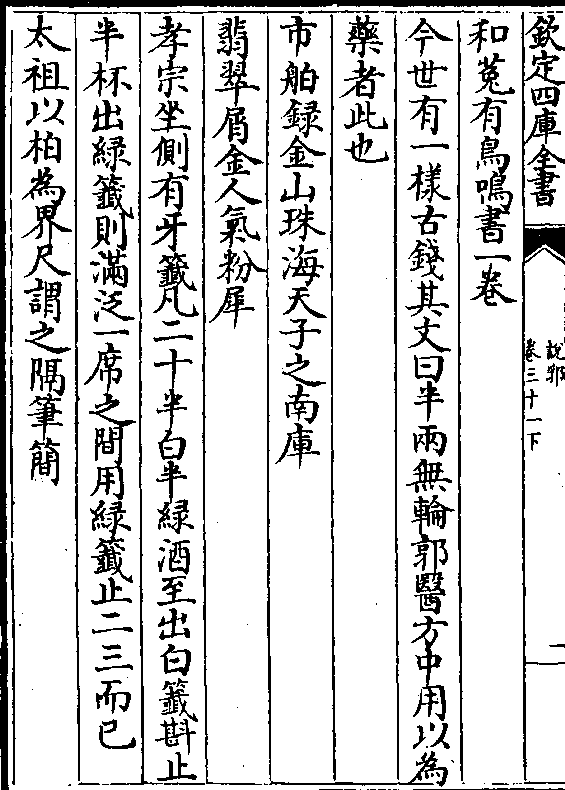 欽定四庫全書
說郛
卷三十一下
二
和菟有鳥鳴書一卷
今世有一様古錢其文曰半兩無輪郭醫方中用以為
藥者此也
市舶録金山珠海天子之南庫
翡翠屑金人氣粉犀
孝宗坐側有牙籤凡二十半白半緑酒至出白籤斟止
半杯出緑籤則滿泛一席之間用緑籤止二三而已
太祖以柏為界尺謂之隔筆簡